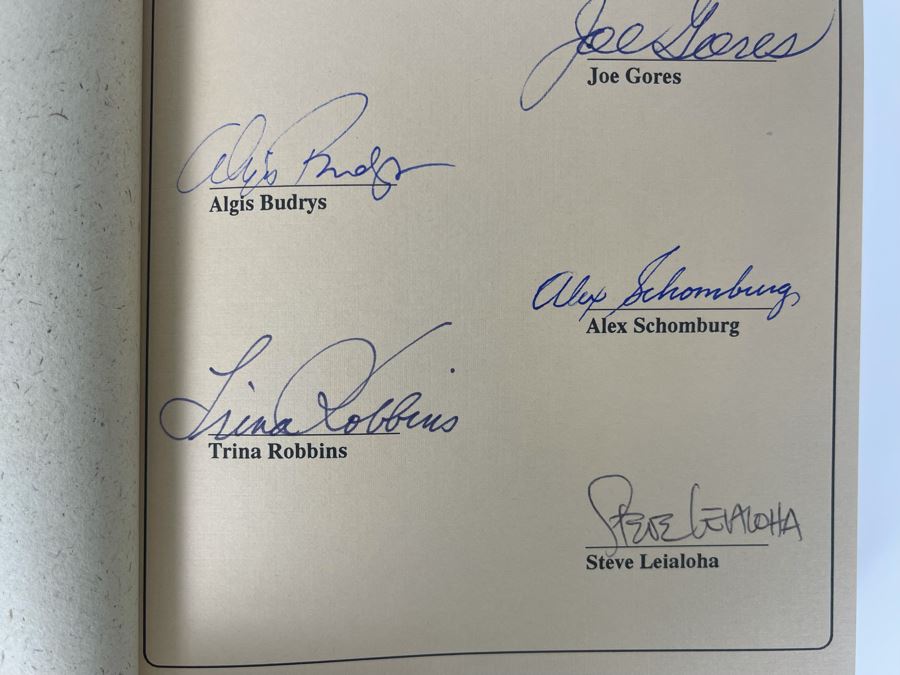 Joe Gores
Joe Gores
Algis Budrys
Algis Budrys
Alex Schomburg
Alex Schomburg
Trina Robbins
Trina Robbins
STEVE LEIALOHA
Steve Leialoha